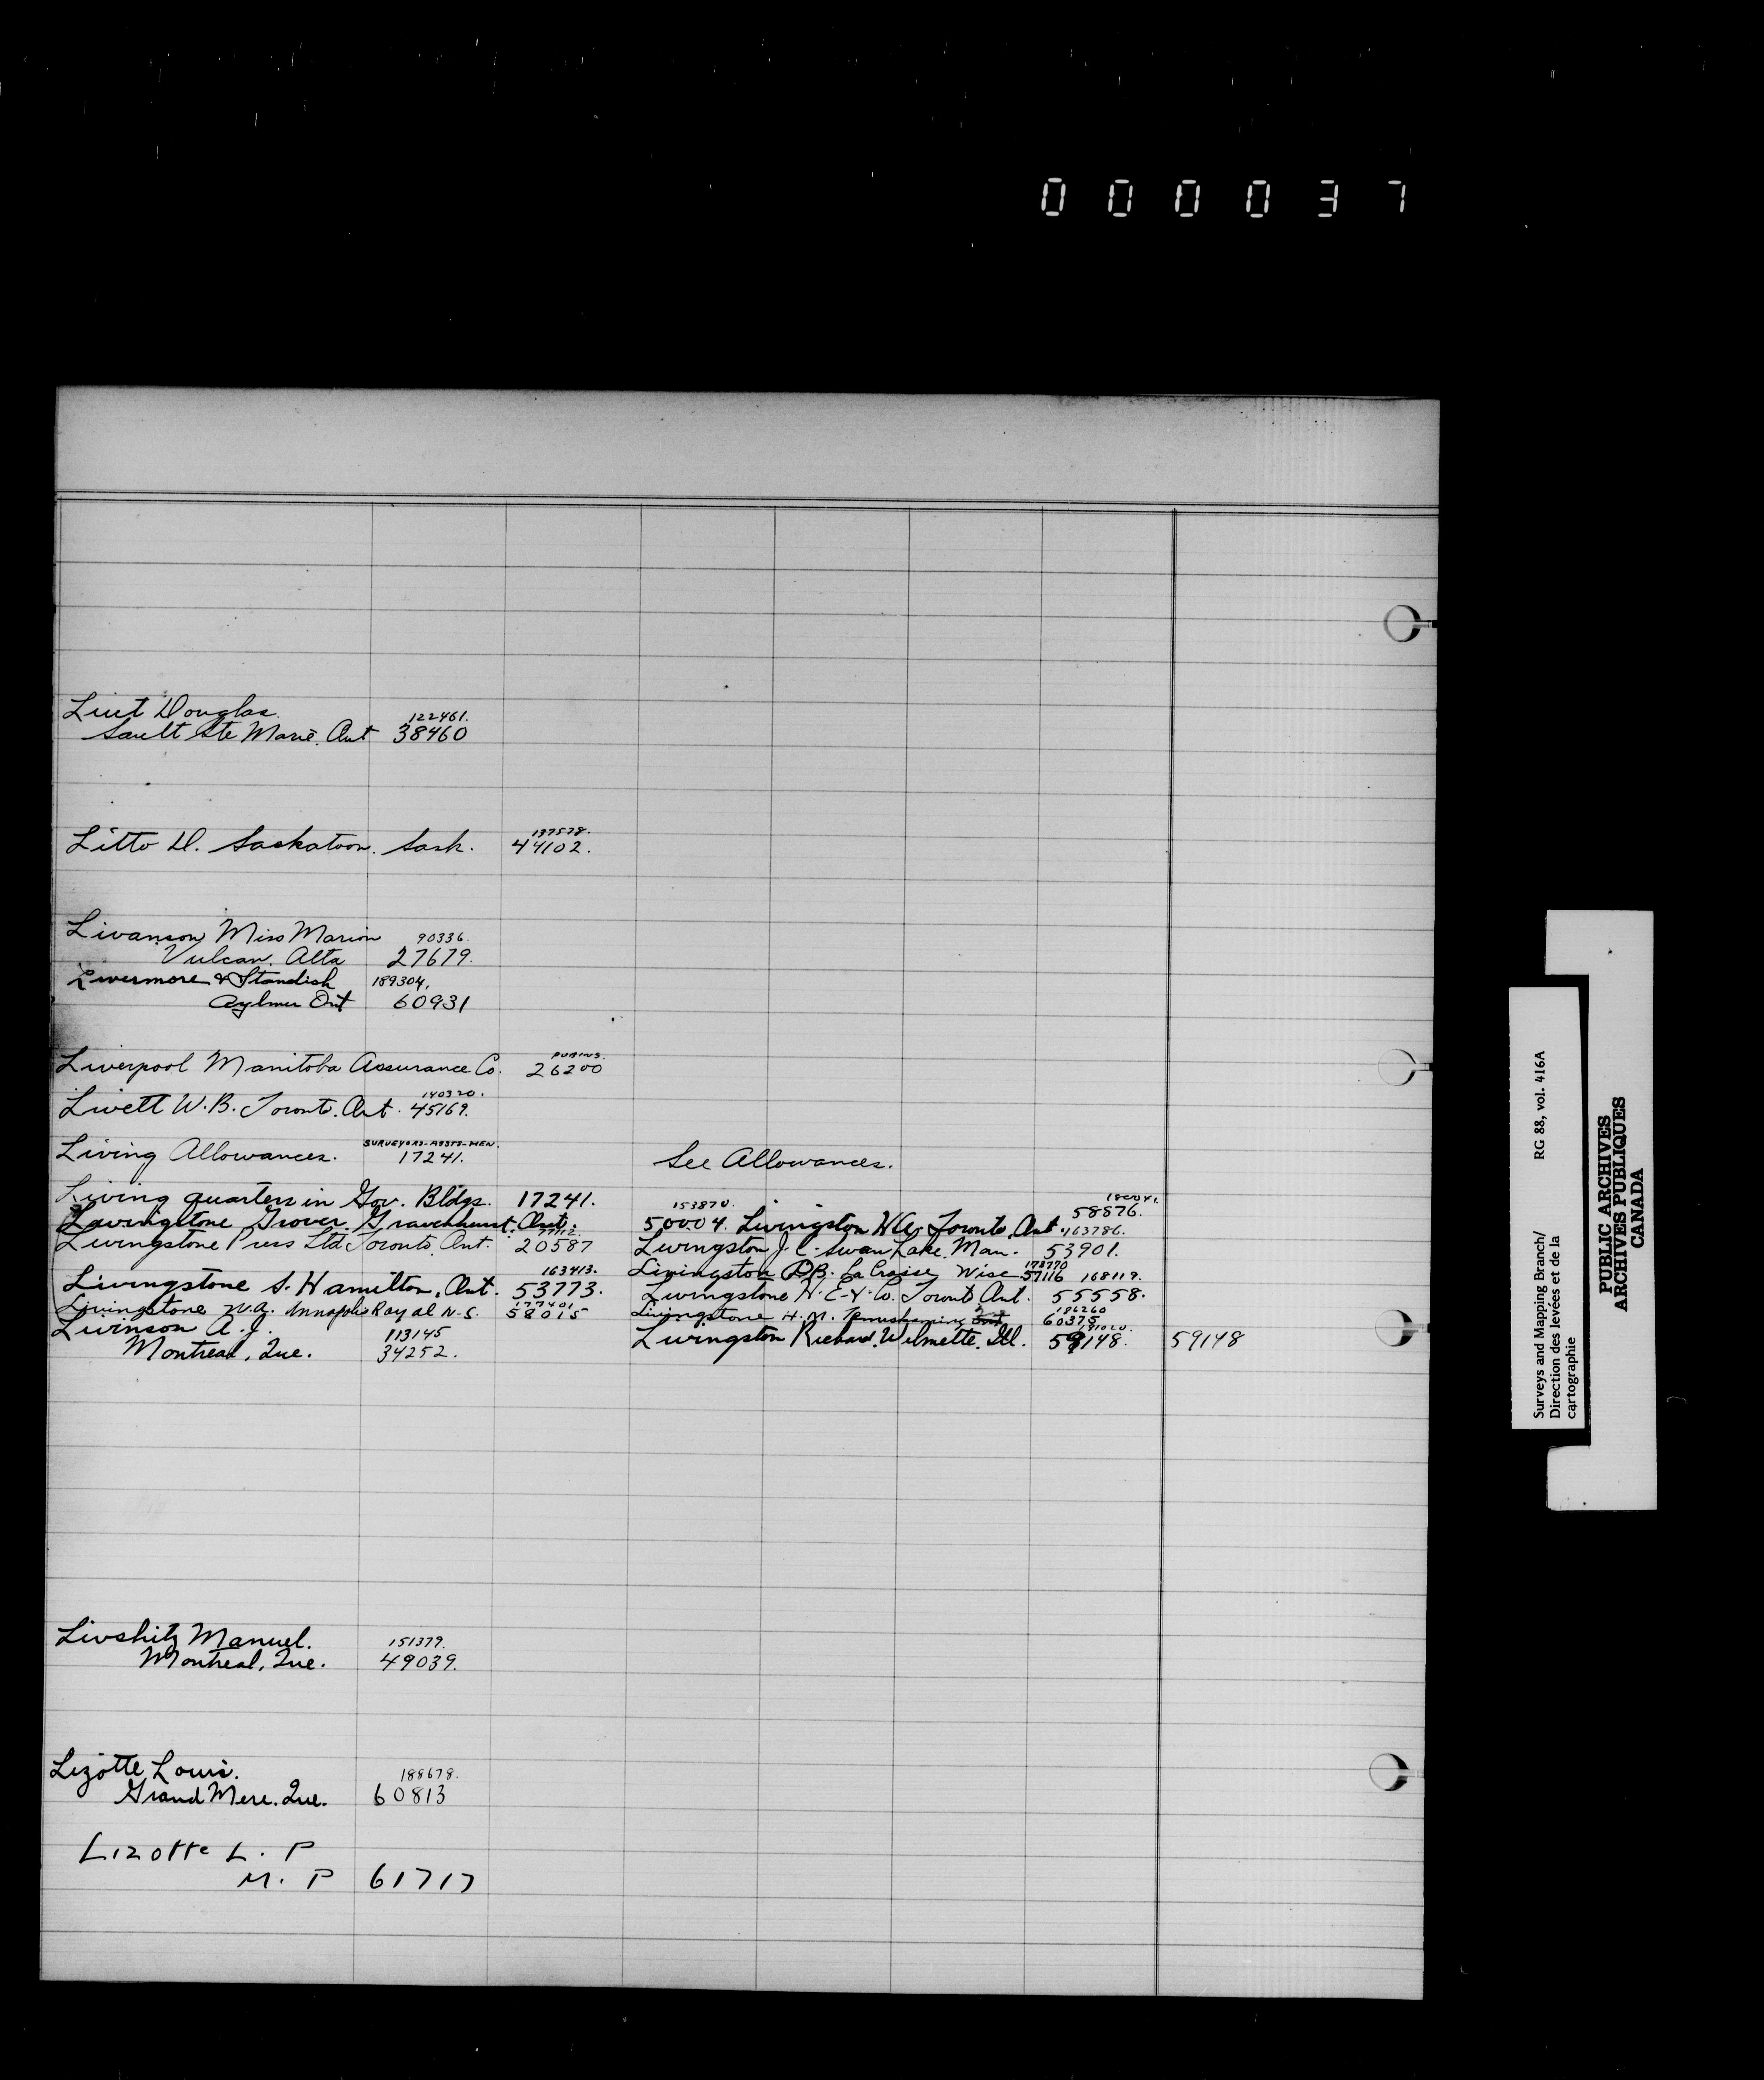 000037
Liut Douglas. 122461.
Sault Ste Marie. Ont 38460
137578.
Litto D. Saskatoon. Sask. 44102.
Livanson, Miss Marion 90336.
Vulcan. Alta 27679.
Livermore & Standish 189304.
Aylmer Ont 60931
Liverpool Manitoba Assurance Co. 26200
140320.
Livett W.B. Toronto. Ont. 45169.
SURVEYORS-ASSTS-MEN.
Living Allowances. 17241. See Allowances.
Living quarters in Gov. Bldgs. 17241.
153870. 58876.
Livingstone Grover. Gravenhurst. Ont. 50004. Livingston W.A. Toronto. Ont
163786.
Livingstone Press Ltd Toronto. Ont. 20587 Livingston J.C. Swan Lake. Man. 53901.
163413. Livingston P.B. La Crosse, Wisc. 178770 57116 168119.
Livingstone S. Hamilton. Ont. 53773. Livingstone H.E. & Co. Toronto Ont. 55558.
177401 186260
Livingstone W.A. Annapolis Royal N.S. 58015 Livingstone H.M. Temiskaming 60375
Livinson A.J. 113145 Livingston Richard. Wilmette. Ill. 59148. 59148
Montreal, Que. 34252.
Livshitz Manuel. 151379.
Montreal, Que. 49039.
Lizotte Louis. 188678.
Grand Mere. Que. 60813
Lizotte L. P
M. P 61717
Surveys and Mapping Branch/ RG 88, vol. 416A
Direction des levées et de la
cartographie
PUBLIC ARCHIVES
ARCHIVES PUBLIQUES
CANADA